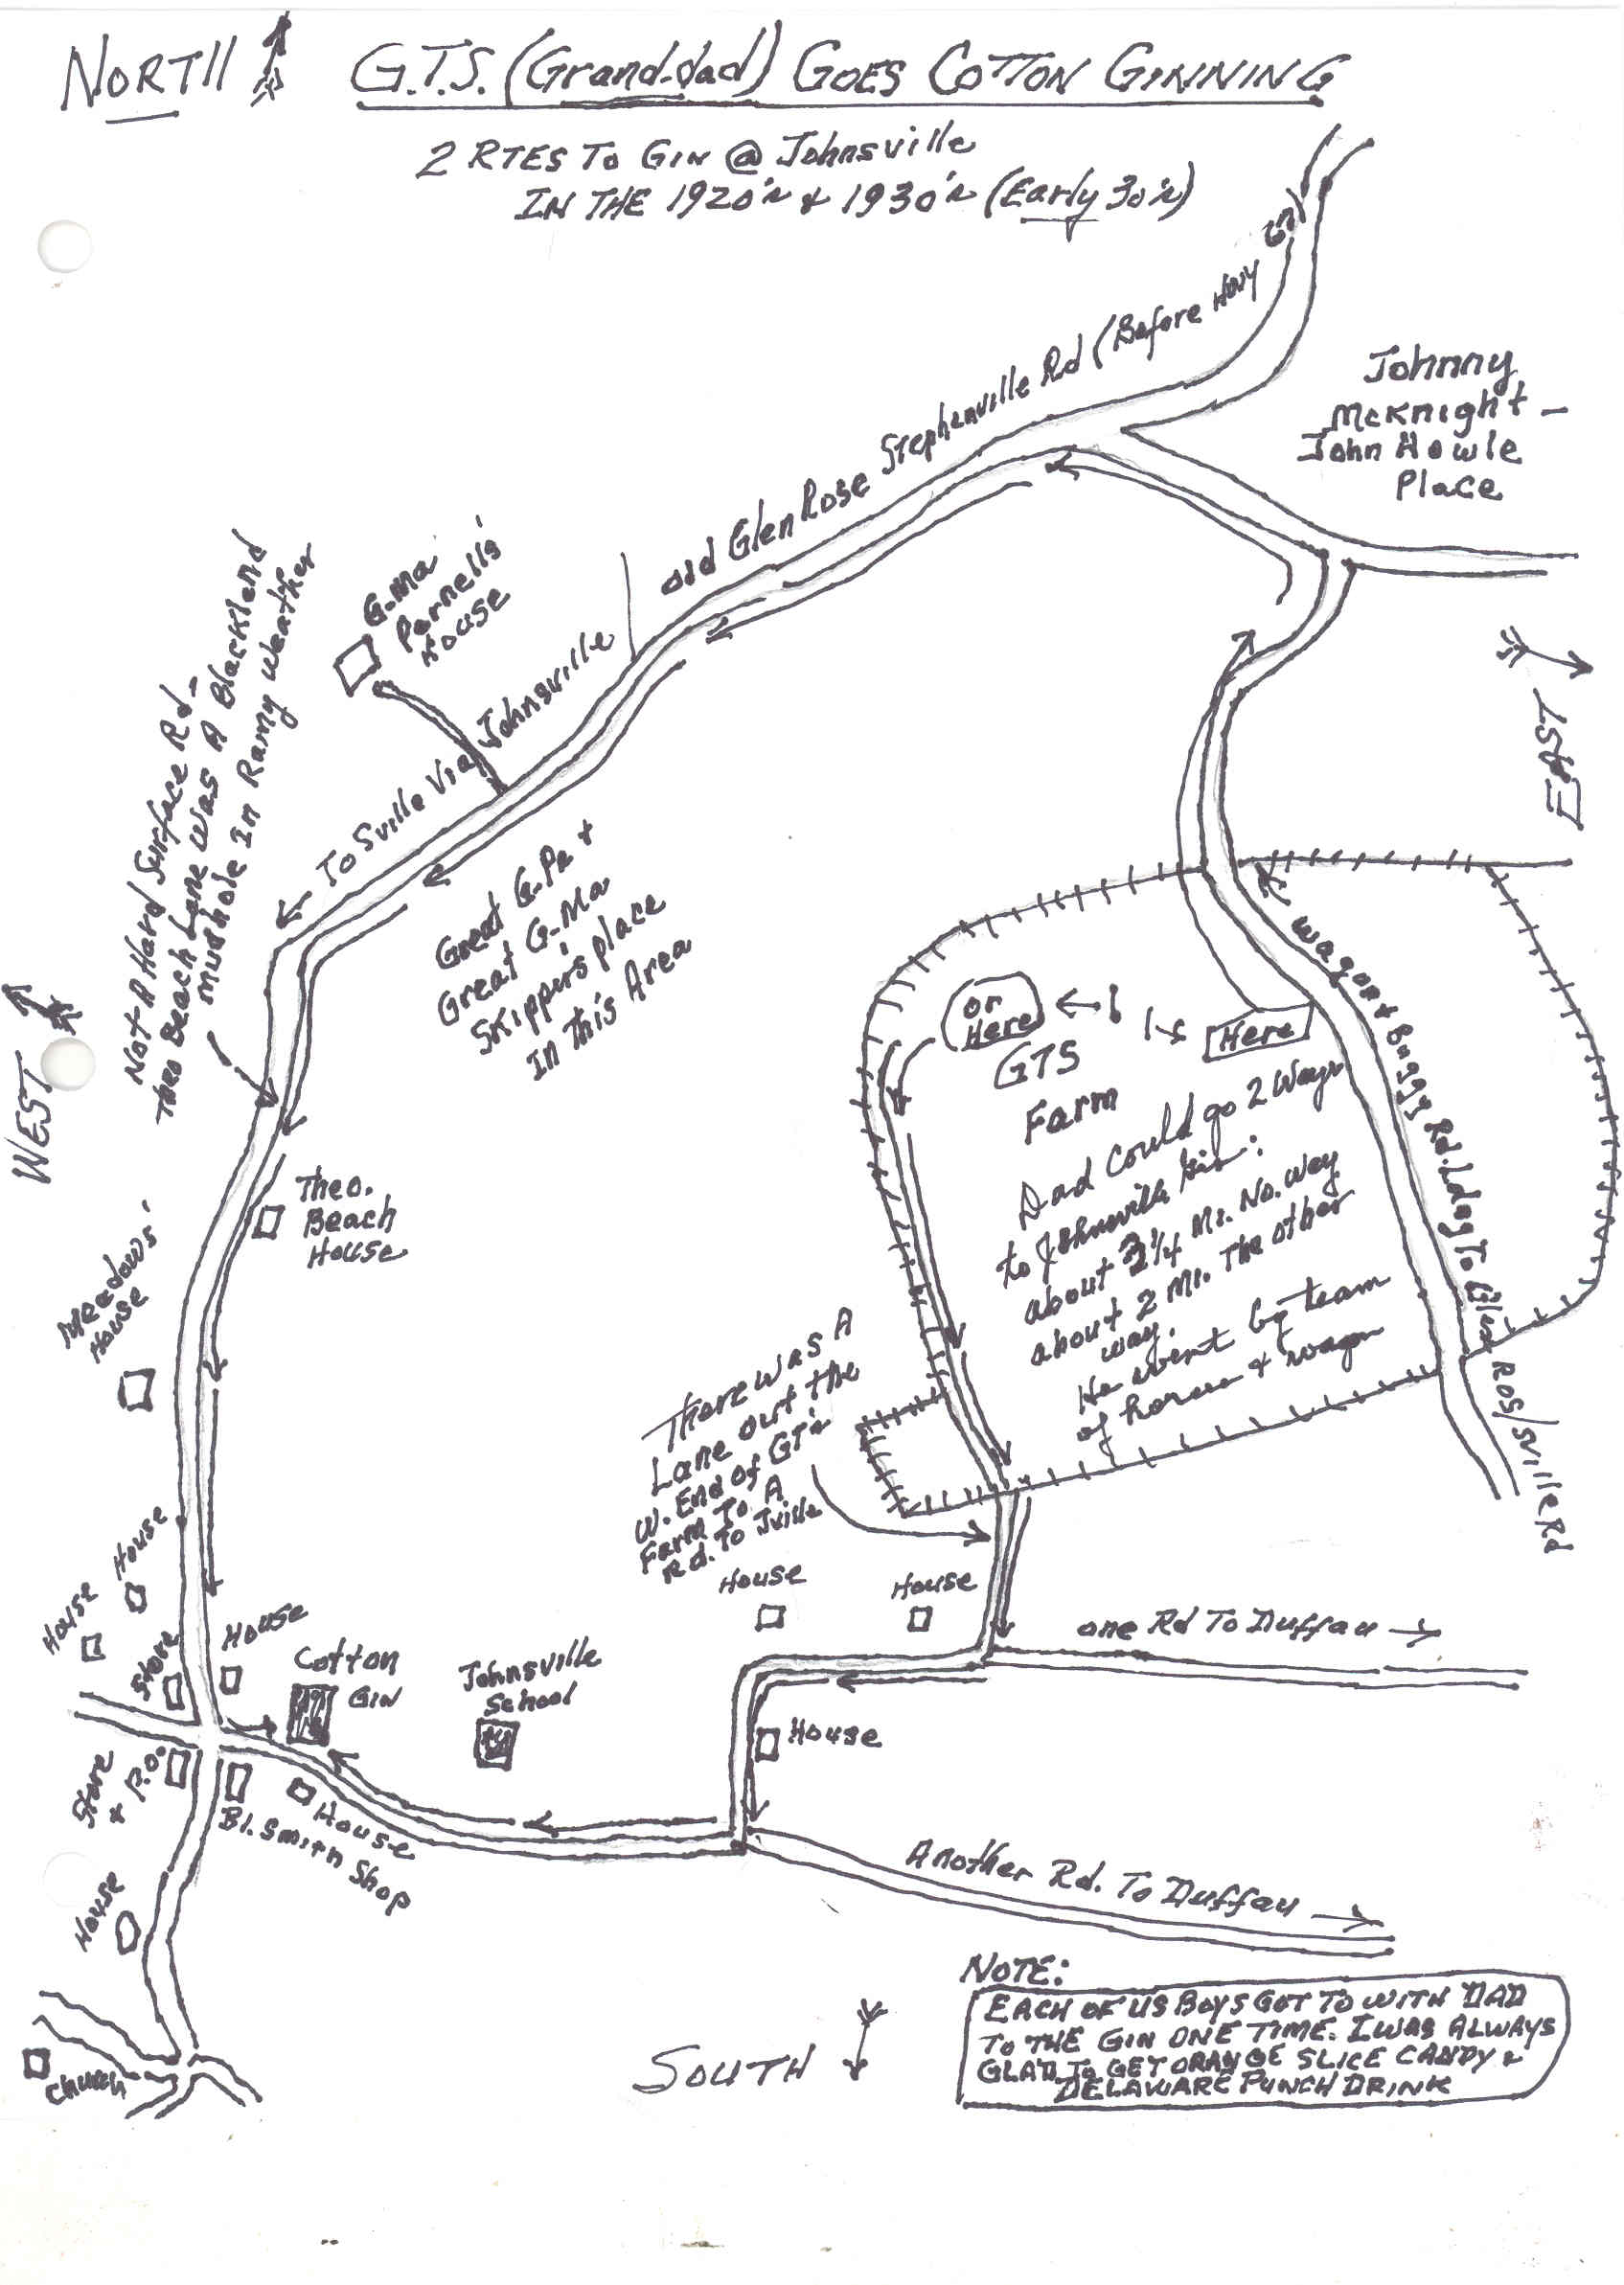 NORTH
G.T.S. (Grand-dad) GOES COTTON GINNING
2 RTES TO GIN @ Johnsville
IN THE 1920's & 1930's (Early 30's)
old Glen Rose Stephenville Rd (Before Hwy 67)
Johnny
McKnight -
John Howle
Place
G-Ma
Parnells'
House
To Sville Via Johnsville
Not A Hard Surface Rd -
Theo Beach Lane Was A Blackland
mudhole In Rainy Weather
EAST
Great G-Pa +
Great G-Ma
Skippers Place
In This Area
WEST
Wagon & Buggy Rd. Ldng To Glen Ros/Sville Rd
or
Here
Here
GTS
Farm
Dad Could go 2 Ways
to Johnsville Gin:
about 2 1/4 Mi. No. Way
about 2 Mi. The other
way.
He went by team
of horses & wagon
Theo.
Beach
House
Meadows'
House
There was A
Lane out the
W. End of GT's
Farm To A
Rd. To Jville
House
House
House
House
Store
House
Cotton
Gin
Johnsville
School
one Rd To Duffau
House
Store
& P.O.
Bl. Smith Shop
House
Another Rd. To Duffau
House
Church
SOUTH
NOTE:
EACH OF US BOYS GOT TO WITH DAD
TO THE GIN ONE TIME. I WAS ALWAYS
GLAD TO GET ORANGE SLICE CANDY &
DELAWARE PUNCH DRINK